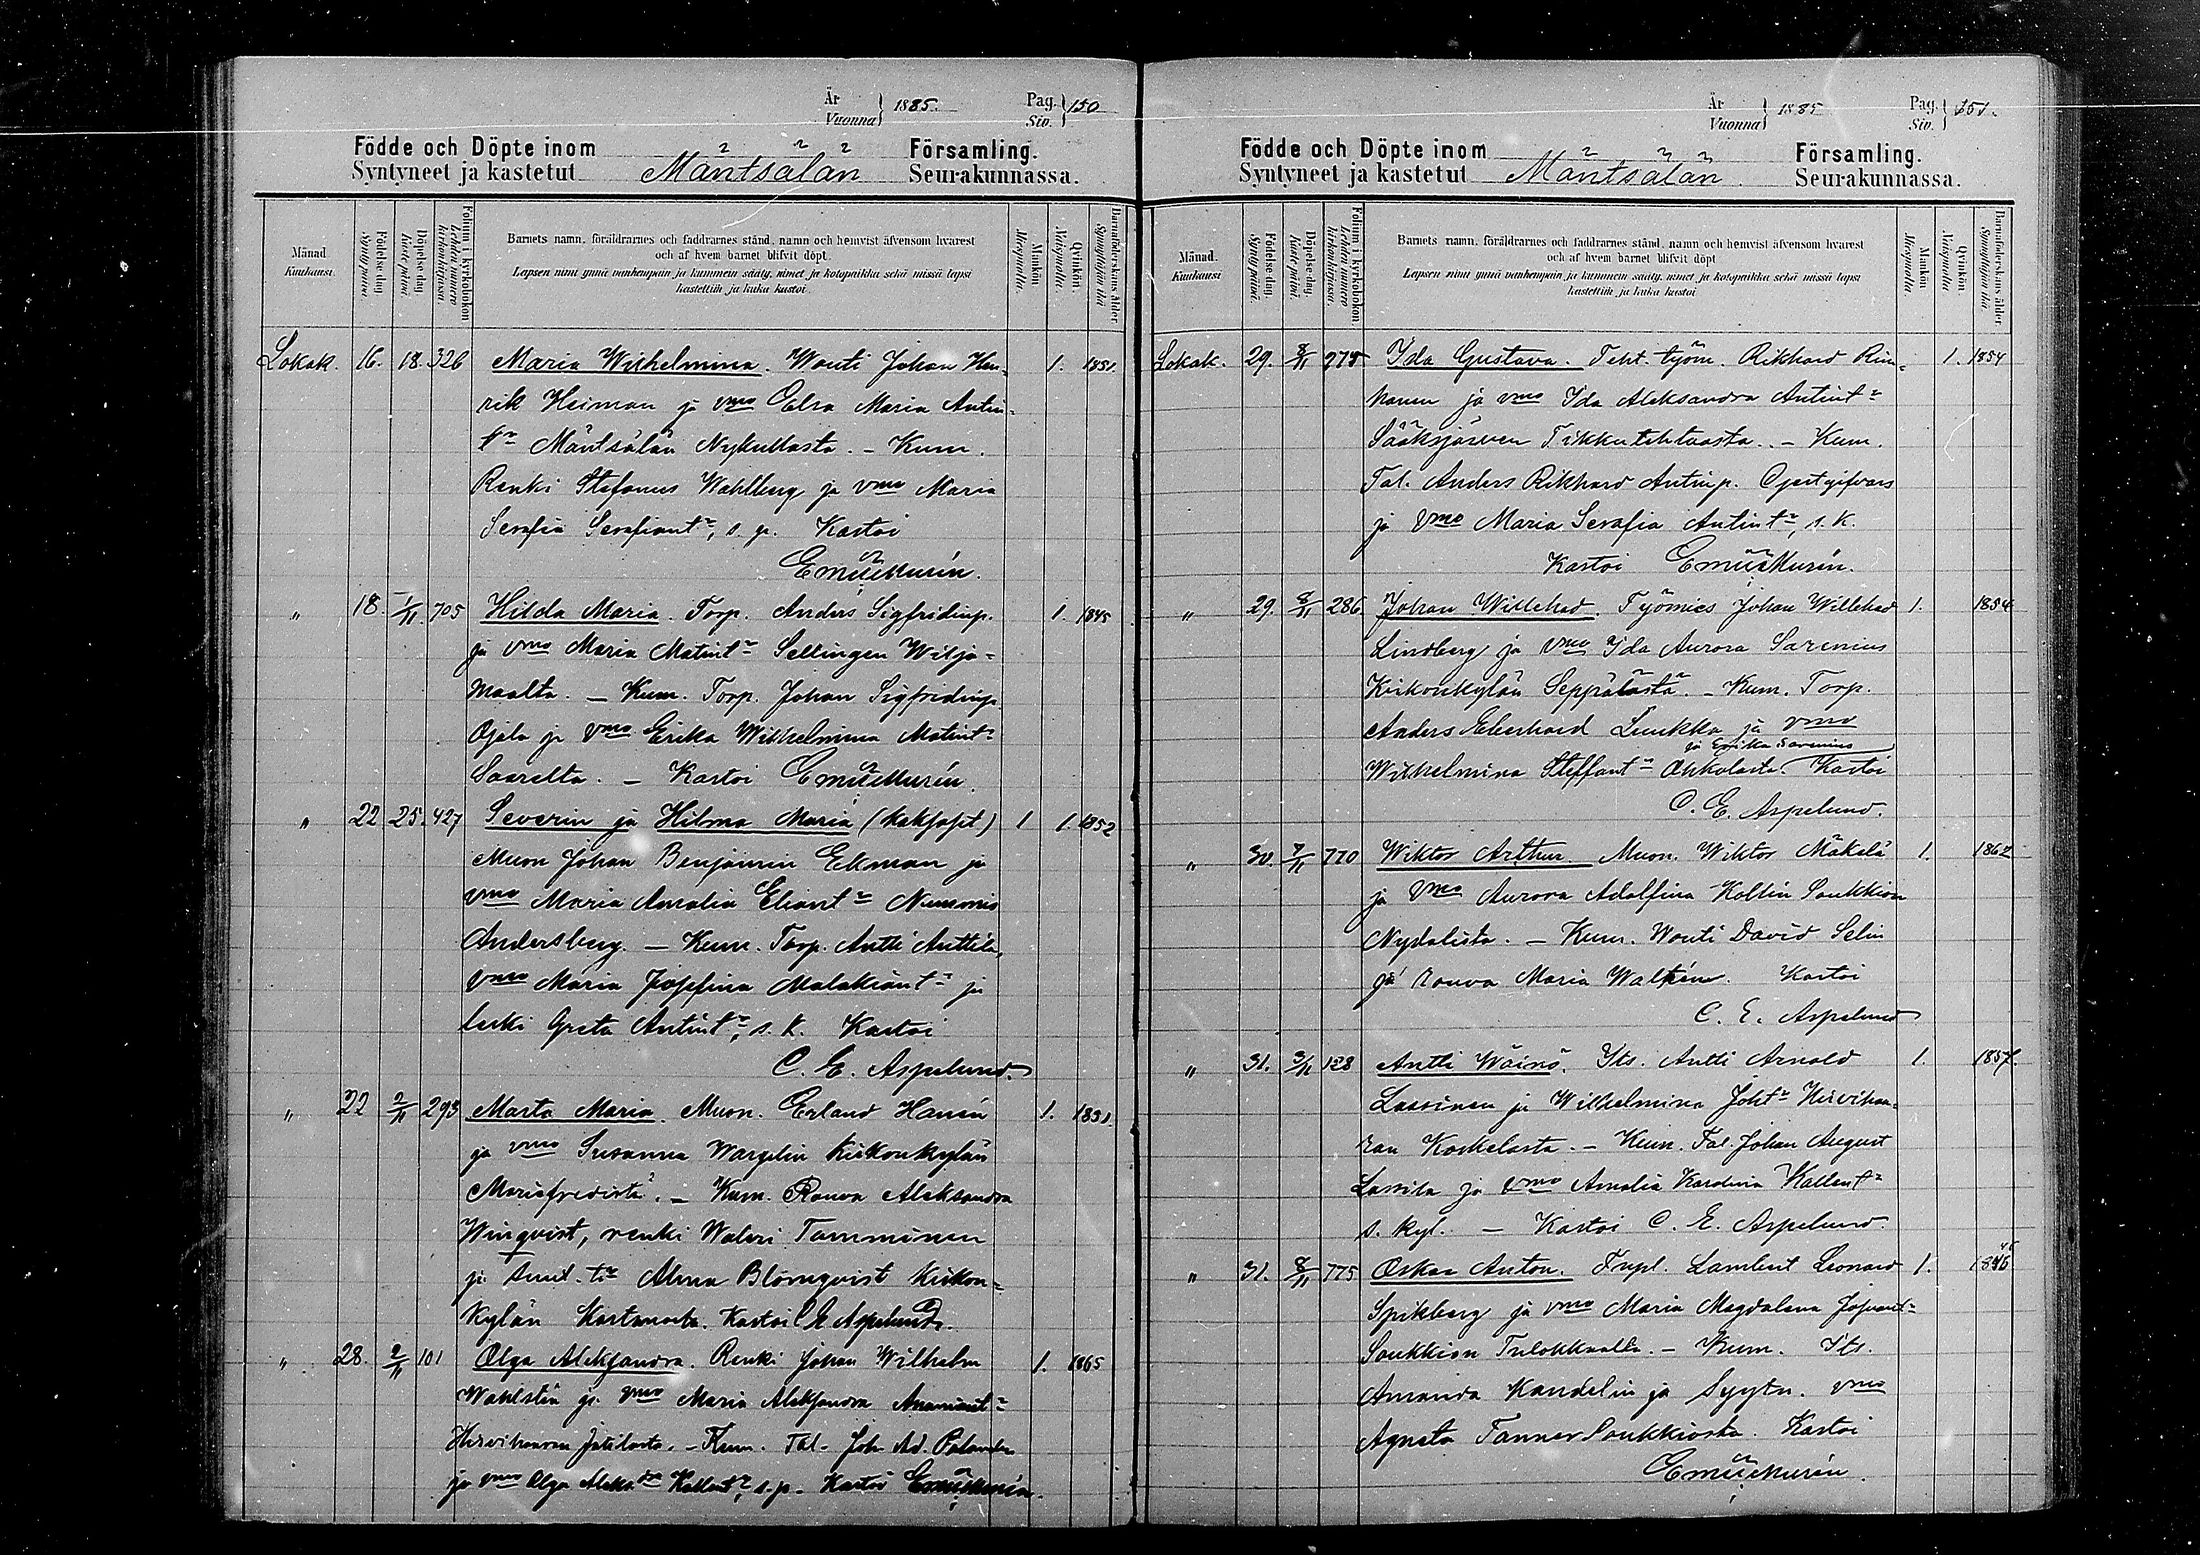 År
Vuonna } 1885. Pag. Siv. } 150
Födde och Döpte inom Församling.
Syntyneet ja kastetut Mäntsälän Seurakunnassa.
Månad. Kuukausi. Födelse dag. Syntypäivä. Döpelse dag. Kastepäivä. Folium i kyrkoboken Lehden numero kirkonkirjassa. Barnets namn, föräldrarnes och faddrarnes stånd, namn och hemvist äfvensom hvarest och af hvem barnet blifvit döpt. Mankön Miespuolia. Qvinkön. Naispuolia. Barnaföderskans ålder. Synnyttäjän ikä
Lapsen nimi ynnä vanhempain ja kummein sääty, nimet ja kotopaikka sekä missä lapsi kastettiin ja kuka kastoi.
Lokak. 16. 18. 326 Maria Wilhelmina. Wouti Johan Hen- 1. 1851.
rik Heiman ja vmo Elsa Maria Antin-
tr Mäntsälän Nykullasta. - Kum.
Renki Stefanus Wahlberg ja vmo Maria
Serafia Serafiant, s. p. Kastoi
Emil Murén.
" 18. 1/11 705 Hilda Maria. Torp. Anders Sigfridinp. 1. 1845
ja vmo Maria Matint Sellingen Wilja-
maalta. - Kum. Torp. Johan Sigfridinp
Ojala ja vmo Erika Wilhelmina Matint
Saarelta. - Kastoi Emil Murén.
" 22 25. 427 Severin ja Hilma Maria (kaksoset) 1 1. 1852
Muon Johan Benjamin Ekman ja
vmo Maria Amalia Eliant Nummis
Andersberg. - Kum. Torp. Antti Anttila,
vmo Maria Josefina Malakiant ja
leski Greta Antint, s. k. Kastoi
C. E. Aspelund.
" 22 2/11 293 Marta Maria. Muon. Erland Hanén 1. 1851.
ja vmo Susanna Wargelin Kirkonkylän
Mariefredista. - Kum. Rouva Aleksandra
Winqvist, renki Walvri Tamminen
ja tr Alma Blomqvist Kirkon-
kylän Kastoi C E Aspelund.
" 28. 2/11 101 Olga Aleksandra. Renki Johan Wilhelm 1. 1865
Wahlstén ja vmo Maria Aleksandra
Hirvihaaran Jutilasta. - Kum. Tal. Joh. Ad. Palander
ja vmo Olga Aleks. Kallent, s. p. Kastoi Emil Murén.
År
Vuonna } 1885 Pag. Siv. } 151.
Födde och Döpte inom Församling.
Syntyneet ja kastetut Mäntsälän. Seurakunnassa.
Månad. Kuukausi Födelse dag. Syntypäivä. Döpelse dag. Kastepäivä. Folium i kyrkoboken Lehden numero kirkonkirjassa. Barnets namn, föräldrarnes och faddrarnes stånd, namn och hemvist äfvensom hvarest och af hvem barnet blifvit döpt Mankön Miespuolia. Qvinkön. Naispuolia. Barnaföderskans ålder. Synnyttäjän ikä
Lapsen nimi ynnä vanhempain ja kummein sääty, nimet ja kotopaikka sekä missä lapsi kastettiin ja kuka kastoi
Lokak. 29. 8/11 275 Ida Gustava. Teht. työm. Rikhard Rin- 1. 1854
hanen ja vmo Ida Aleksandra Antint
Sääksjärven Tikkutehtaasta. - Kum.
Tal. Anders Rikhard Antinp.
ja vmo Maria Serafia Antint, s. k.
Kastoi Emil Murén.
" 29. 8/11 286 Johan Willehad. Työmies Johan Willehad 1. 1854
Lindberg ja vmo Ida Aurora Sarenius
Kirkonkylän Seppälästä. - Kum. Torp.
Anders Eberhard Luukka ja vmo
ja Erika Sarenius
Wilhelmina Steffant Ohkolasta. Kastoi
C. E. Aspelund.
" 30. 7/11 770 Wiktor Arthur. Muon. Wiktor Mäkelä 1. 1862
ja vmo Aurora Adolfina Kollin Soukkion
Nydalista. - Kum. Wouti David Selin
ja rouva Maria Waltén. Kastoi
C. E. Aspelund
" 31. 3/11 128 Antti Wäinö. Its. Antti Arnold 1. 1857.
Lassinen ja Wilhelmina Joht Hirvihaa-
ran Koskelasta. - Kum. Tal. Johan August
Lassila ja vmo Amalia Karolina Kallent
s. kyl. - Kastoi C. E. Aspelund.
" 31. 8/11 775 Oskar Anton. Tnpl. Lambert Leonard 1. 1846
Spikberg ja vmo Maria Magdalena
Soukkion Tulokkaalla. - Kum. Its.
Amanda Kandelin ja Syytn. vmo
Agneta Tanner Soukkiosta. Kastoi
Emil Murén.